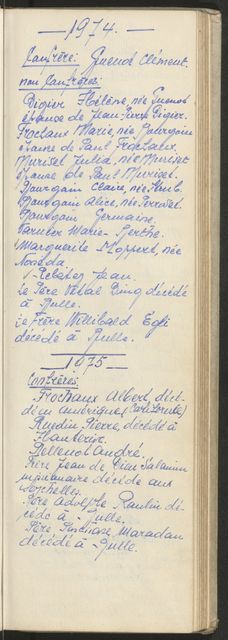 — 1974. —
Confrère: Quenot Clément.
non Confrères:
Digier Hélène, née Quenot
épouse de Jean-Pierre Digier.
Frochaux Marie, née Bourgoin
épouse de Paul Frochaux.
Muriset Julia, née Muriset
épouse de Paul Muriset.
Bourgoin Claire, née
Bourgoin Alice, née Perroset.
Bourgoin Germaine.
Varnier Marie-Berthe.
Marguerite née
Jean.
Le Père Vital décédé
à Bulle.
Le Frère Willibald Egli
décédé à Bulle.
1975
Confrères:
Frochaux Albert, décé-
dé en Amérique (Californie)
Ruedin Pierre, décédé à
Hauterive.
Bellenot André.
Frère Jean de Dieu
missionnaire décédé aux
Seychelles.
Père Adolphe dé-
cédé à Bulle.
Père Maradan
décédé à Bulle.